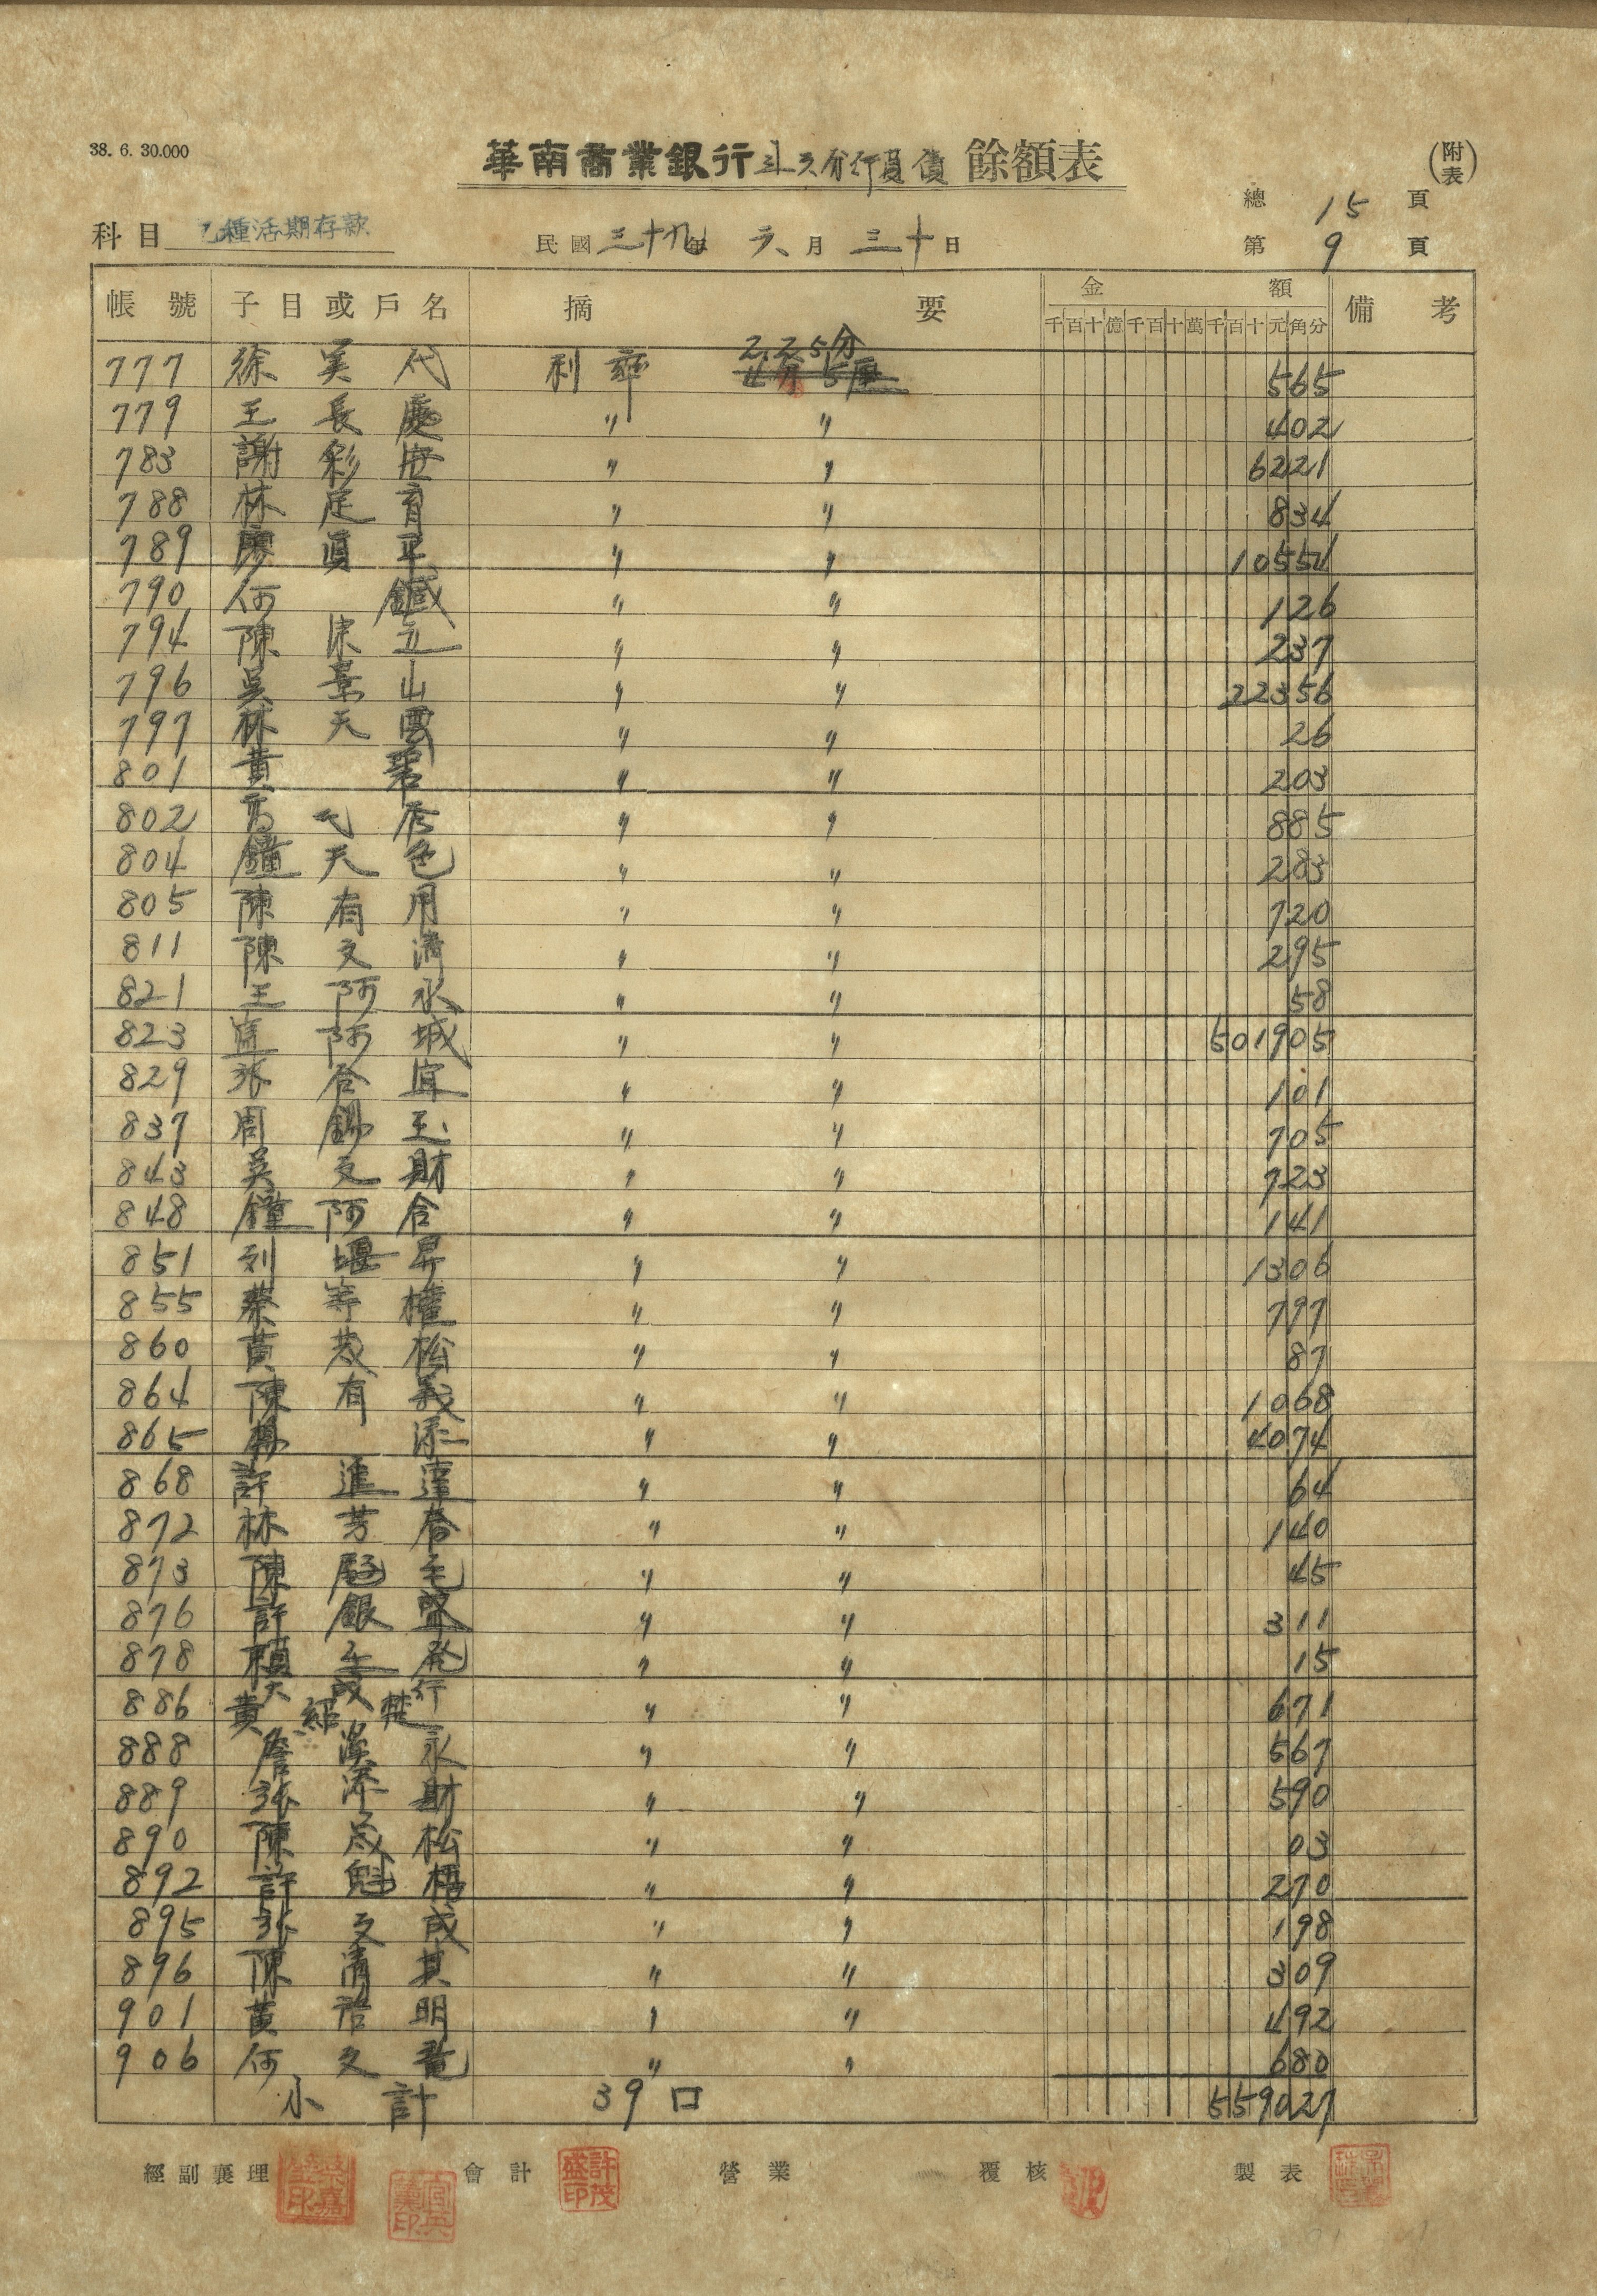 38. 6. 30.000
華南商業銀行斗六分行負債餘額表
(附表)
總 15 頁
科目 乙種活期存款 民國三十九年 六月 三十日 第 9 頁
帳號 子目或戶名 摘要 金額 備考
千百十億千百十萬千百十元角分
2.25分
777 徐 代 利率 4分5厘 565
779 王長慶 〃 〃 402
783 謝彩 〃 〃 6221
788 林足育 〃 〃 834
789 廖頂平 〃 〃 10554
790 何鍼 〃 〃 126
794 陳 立 〃 〃 237
796 吳景山 〃 〃 22356
797 林天雲 〃 〃 26
801 黃 〃 〃 203
802 〃 〃 885
804 鐘天色 〃 〃 283
805 陳有用 〃 〃 720
811 陳文清 〃 〃 295
821 王阿永 〃 〃 58
823 阿城 〃 〃 501905
829 張合宜 〃 〃 101
837 周錫玉 〃 〃 705
843 吳文財 〃 〃 723
848 鐘阿合 〃 〃 141
851 堰昇 〃 〃 1306
855 蔡等權 〃 〃 797
860 黃茂松 〃 〃 87
864 陳有義 〃 〃 1068
865 楊添 〃 〃 4074
868 許進達 〃 〃 64
872 林芳春 〃 〃 140
873 陳 〃 〃 45
876 許銀盤 〃 〃 311
878 〃 〃 15
886 黃紹楚 〃 〃 671
888 詹溪永 〃 〃 567
889 張添財 〃 〃 590
890 陳 松 〃 〃 03
892 許魁梧 〃 〃 270
895 張文成 〃 〃 198
896 陳清其 〃 〃 309
901 黃治明 〃 〃 492
906 何文龍 〃 〃 680
小計 39口 559027
經副襄理 會計 許茂盛印 營業 覆核 製表